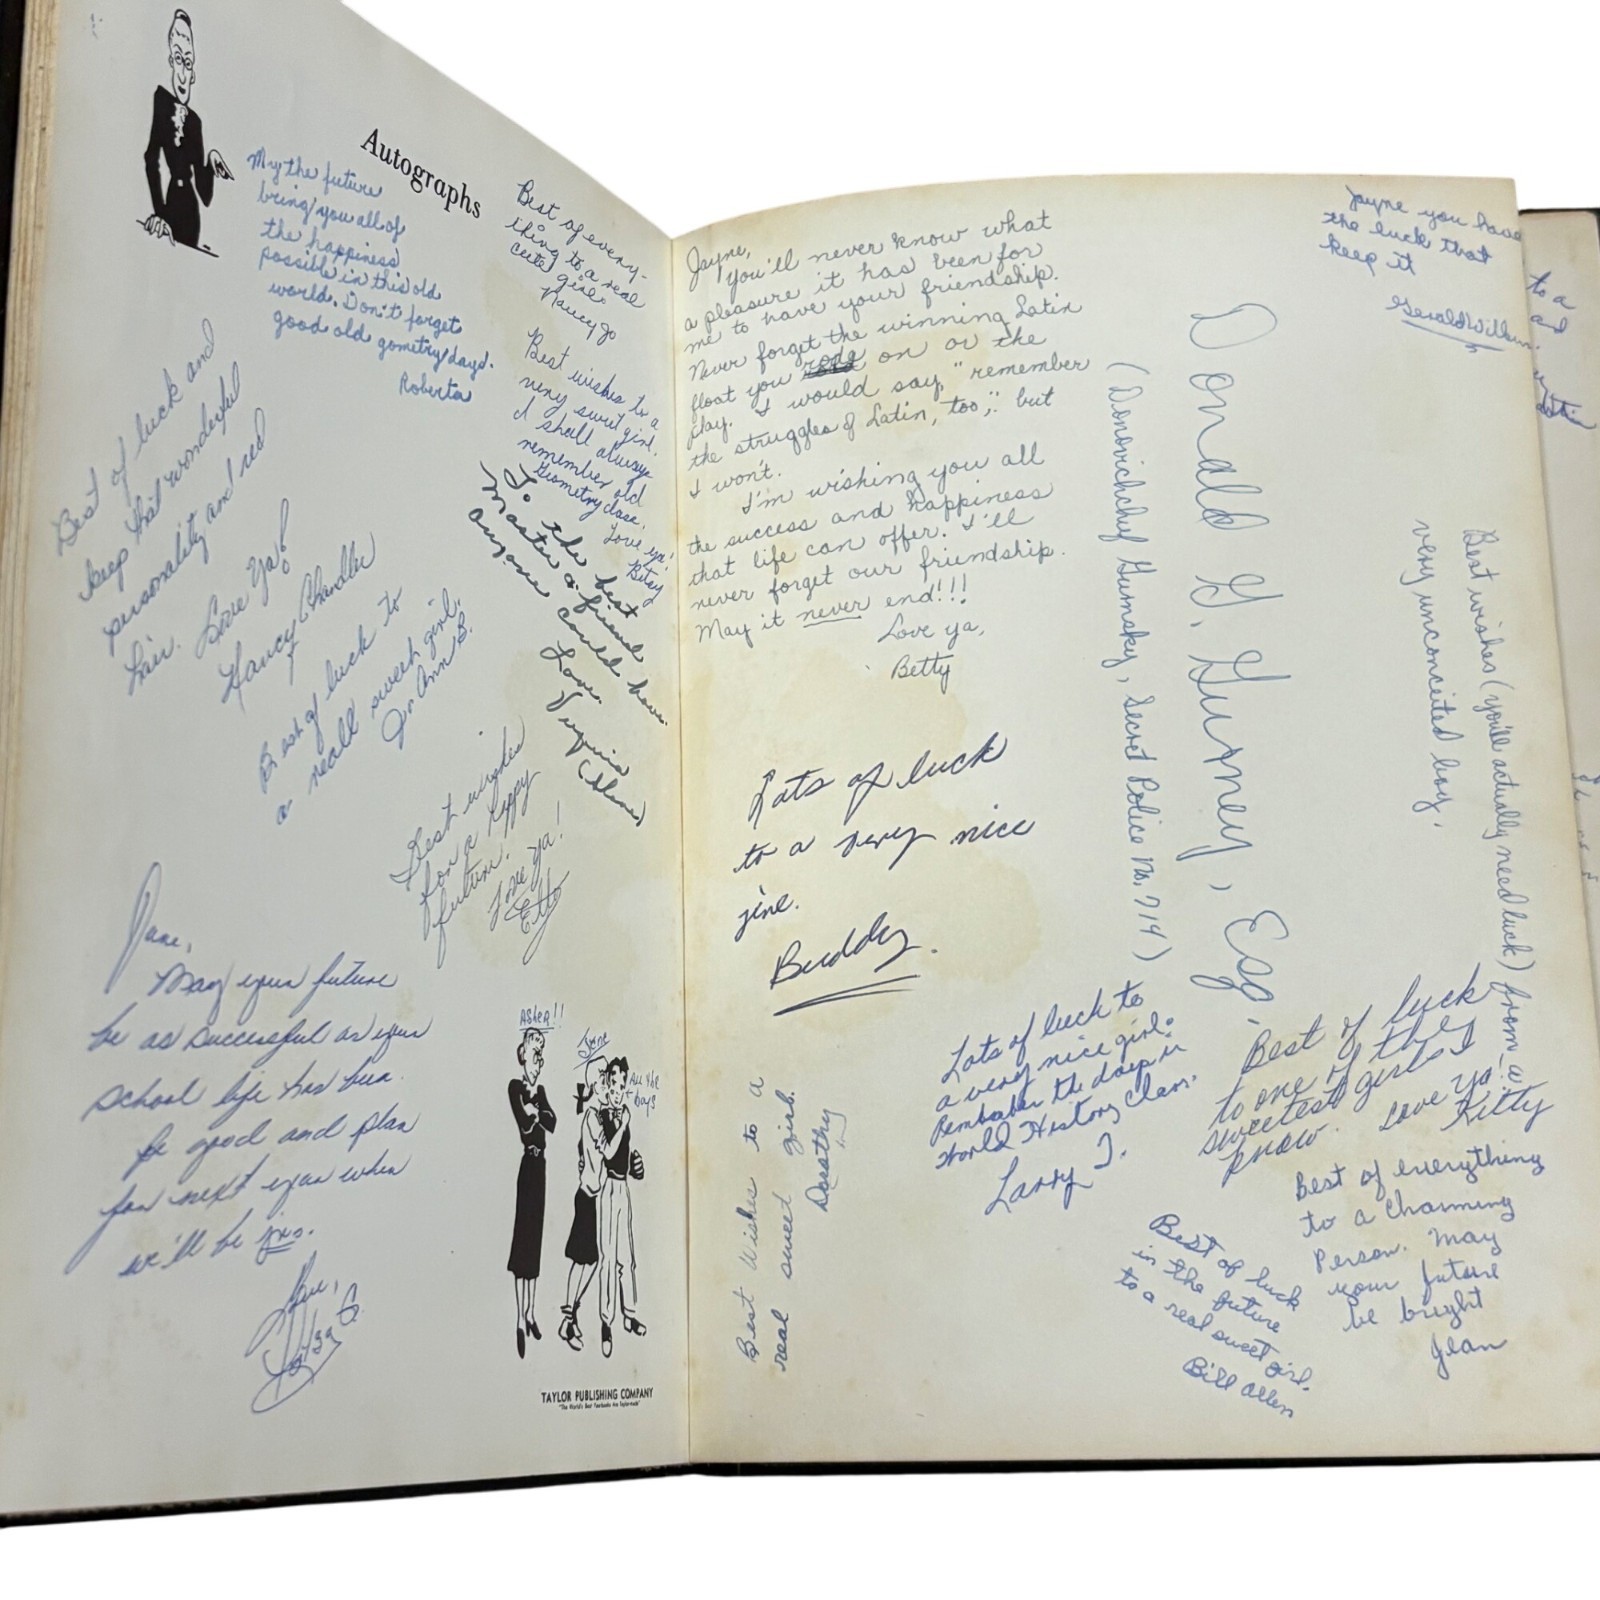 Autographs
My the future
bring you all of
the happiness
possible in this old
world. Don't forget
good old gometry days.
Roberta
Best of every-
thing to a real
cute girl.
Nancy Jo
Best wishes to a
very sweet girl.
I shall always
remember old
Geometry class.
Love ya!
Betsy
Best of luck and
keep that wonderful
personality and red
hair. Love Ya!
Nancy Chandler
To the best
Master & friend
anyone could have.
Love,
Virginia
Best of luck to
a reall sweet girl.
Jo Ann B.
Best wishes
for a happy
future.
Love Ya!
Etta
Jane,
May your future
be as successful as your
school life has been.
Be good and plan
for next year when
we'll be jrs.
Love,
ASHER!!
Jane
ALL the
boys
TAYLOR PUBLISHING COMPANY
"The World's Best Yearbooks Are Taylor-made"
Jayne,
You'll never know what
a pleasure it has been for
me to have your friendship.
Never forget the winning Latin
float you rode on or the
day. I would say, "remember
the struggles of Latin, too," but
I won't.
I'm wishing you all
the success and happiness
that life can offer. I'll
never forget our friendship.
May it never end!!!
Love ya,
Betty
Lots of luck
to a very nice
jine.
Buddy.
Best Wishes to a
real sweet girl.
Dorothy
Lots of luck to
a very nice girl.
Remember the days in
World History Class.
Larry J.
(Donovichchef Gurnsky, Secret Police No. 714)
Donald G. Gurney, Esq.
Jayne you have
the luck that
keep it
Gerald Wilken
Best wishes (you'll actually need luck) from a
very unconceited boy.
Best of luck
to one of the
sweetest girls I
know. Love Ya!
Kitty
Best of everything
to a Charming
Person. May
your future
be bright
Jean
Best of luck
in the future
to a real sweet girl.
Bill Allen
to a
and